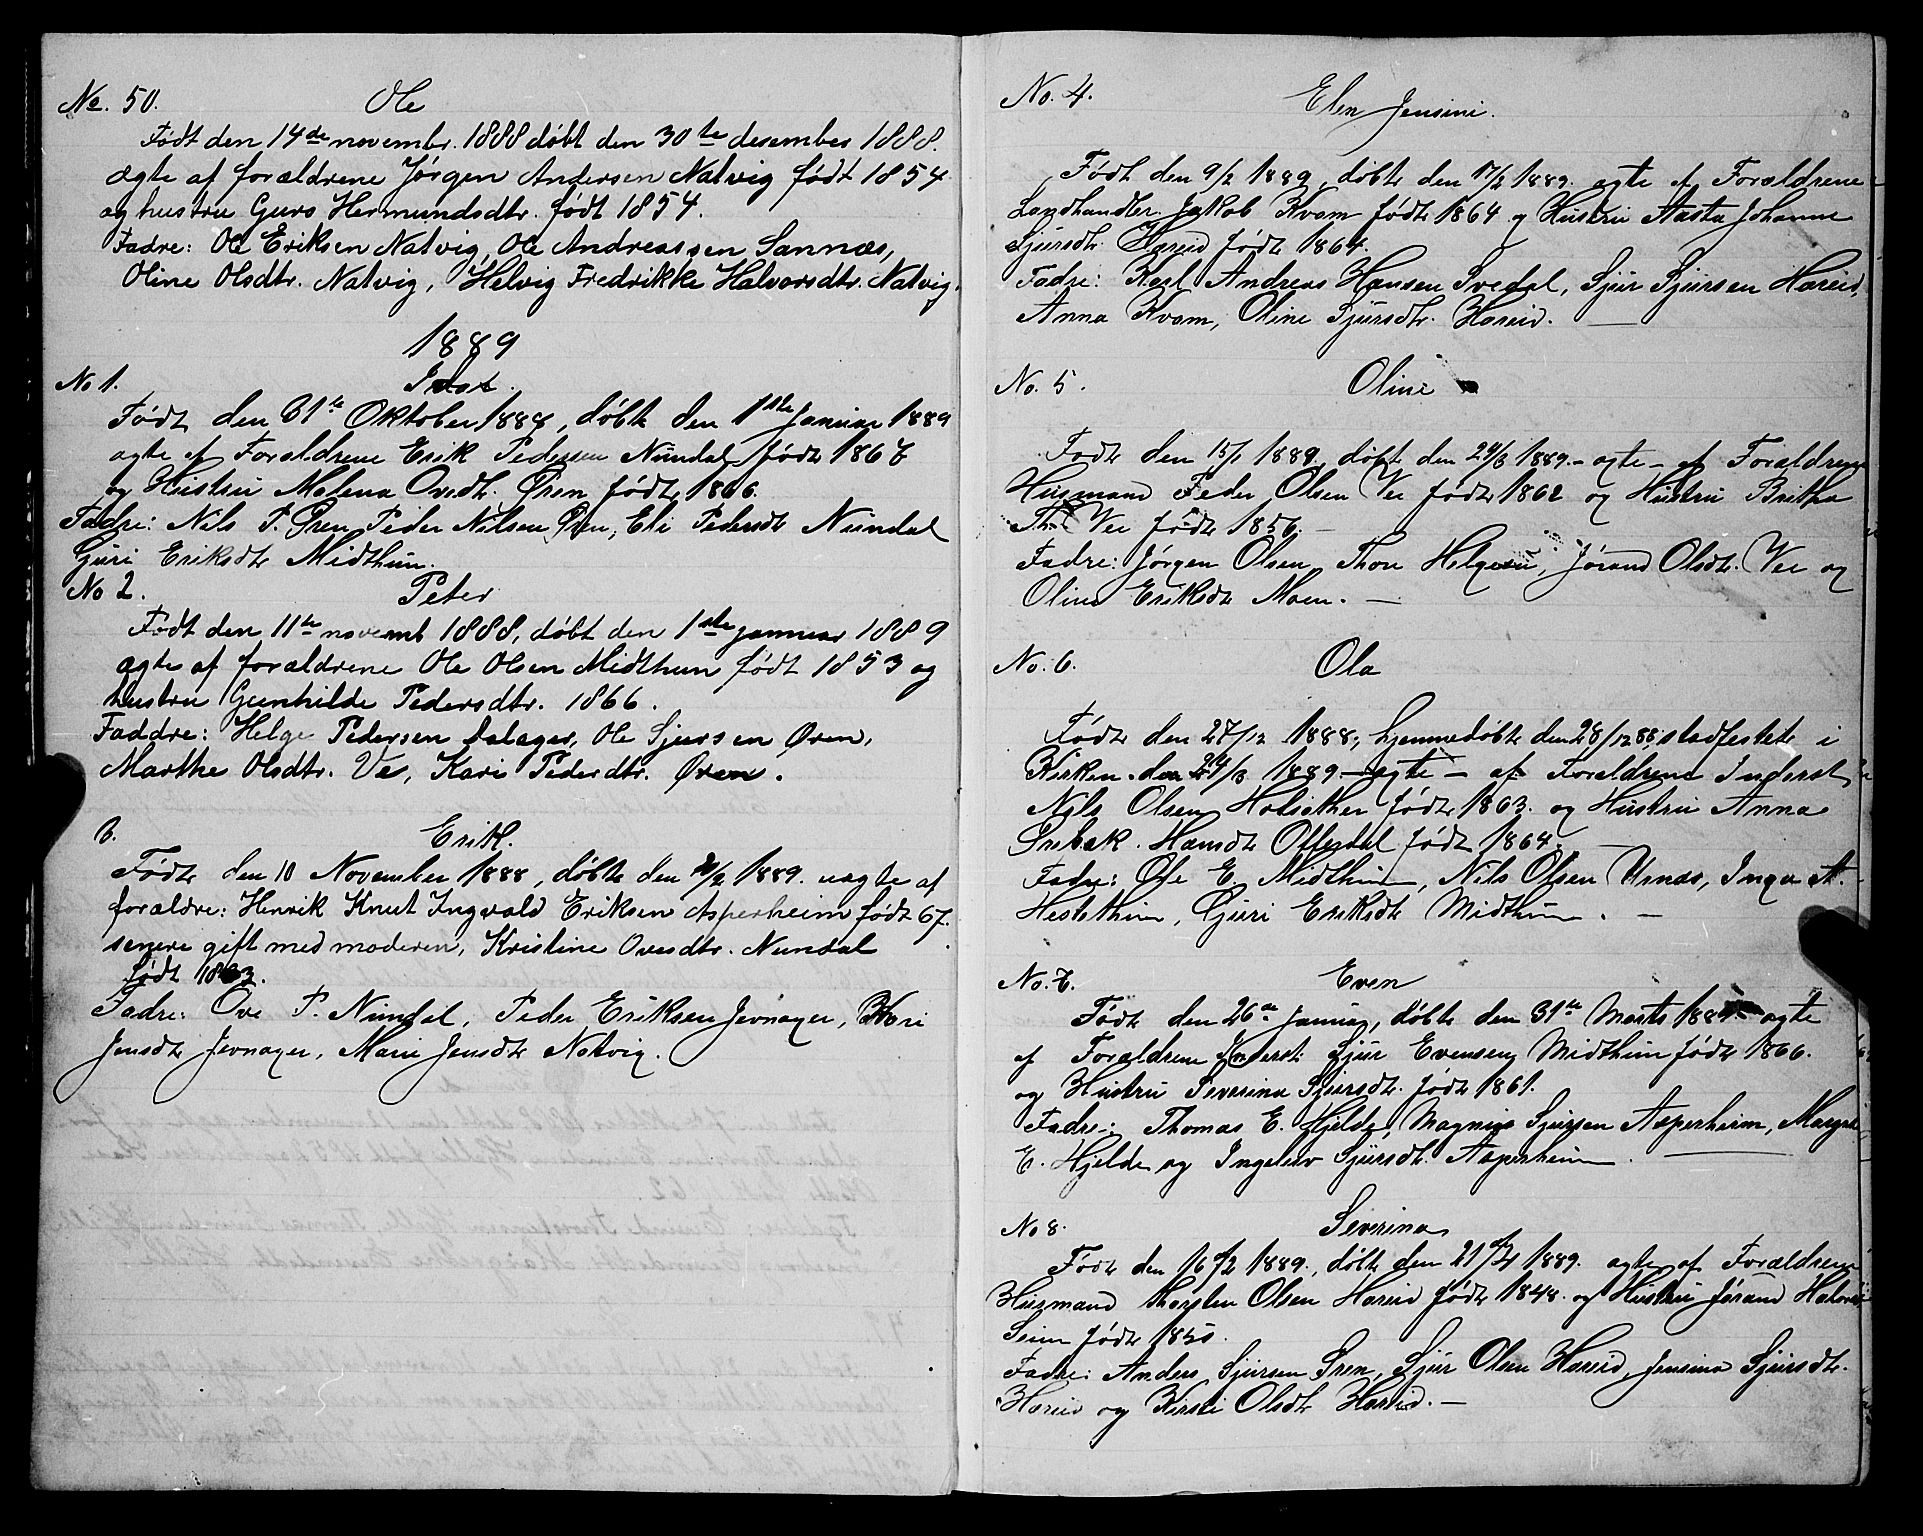 No. 50. Ole
Født den 14de novembr. 1888 døbt den 30te desember 1888.
ægte af forældrene Jørgen Andersen Natvig født 1854
og hustru Guro Hermundsdtr. født 1854.
Fadre: Ole Eriksen Natvig, Ole Andreassen Sannæs,
Oline Olsdtr. Natvig, Helvig Fredrikke Halvorsdtr. Natvig.
1889
No 1.
Født den 31te Oktober 1888, døbt den 1ste Januar 1889
ægte af Forældrene Erik Pedersen Nundal født 1867
og Hustru Malena Ovedt. Øren født 1866.
Fadre: Nils P. Øren, Peder Nilsen Øren, Eli Pedersdt Nundal
Guri Eriksdt Midthun.
No 2. Peter
Født den 11te novemb 1888, døbt den 1ste januar 1889
ægte af forældrene Ole Olsen Midthun født 1853 og
hustru Gunhilde Pedersdtr. 1866.
Faddre: Helge Pedersen Dalager, Ole Sjursen Øren,
Marthe Olsdtr. Ve, Kari Pedersdtr. Øren.
3. Erik.
Født den 10 November 1888, døbt den 1889. uægte af
forældre: Henrik Knut Ingvald Eriksen Asperheim født 67.
senere gift med moderen, Kristine Ovesdtr. Nundal
født 1863.
Fadre: Ove P. Nundal, Peder Eriksen Jevnager, Kari
Jensdt Jevnager, Marie Jensdt Natvig.
No. 4. Elen Jensine.
Født den 9/2 1889, døbt den 17/2 1889. ægte af Forældrene
Landhandler Jakob Kvam født 1864 og Hustru Aasta Johanne
Sjursdt. Hæreid født 1864.
Fadre: Karl Andreas Hansen Svedal, Sjur Sjursen Hæreid,
Anna Kvam, Oline Sjursdt. Hæreid. —
No. 5. Oline
Født den 15/1 1889, døbt den 24/3 1889. – ægte – af Forældrene
Husmand Peder Olsen Ve født 1862 og Hustru Britha
Ths Vee født 1856. –
Fadre: Jørgen Olsen, Thore Helgesen, Jørand Olsdt. Vee og
Oline Eriksdt Moen. –
No. 6. Ola
Født den 27/12 1888, hjemmedøbt den 28/12 88, stadfestet i
Kirken den 24/3 1889 – ægte – af Forældrene Inderst
Nils Olsen Holsether født 1863. og Hustru Anna
Hansdt Offerdal født 1864. –
Fadre: Ole E. Midthun, Nils Olsen Urnæs, Inga A.
Hestethun, Guri Eriksdt Midthun. –
No. 7. Even
Født den 26de Januar, døbt den 31te Marts 1889 – ægte
af Forældrene Inderst Sjur Evensen Midthun født 1866.
og Hustru Severina Sjursdt. født 1861.
Fadre: Thomas E. Hjelde, Magnus Sjursen Asperheim, Margrete
E. Hjelde og Ingeleiv Sjursdt. Asperheim.
No 8. Severina
Født den 16/2 1889, døbt den 21/4 1889. ægte af Forældrene
Husmand Thorsten Olsen Hæreid født 1848. og Hustru Jørand
Seim født 1850.
Fadre: Anders Sjursen Øren, Sjur Olsen Hæreid, Jensina Sjursdt.
Hæreid og Kirsti Olsdt Hæreid. –